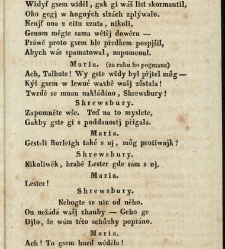 Widyl gsem widěl, gak gi wáš list skormautil,
Oko gegj w hogných slzách zplýwalo.
Nenj! onа z citu zzuta, nikoli,
Genom mégte sama wětšj dowěru —
Práwě proto gsem ble předkem pospjšil,
Abych wás spamatowal, napomenul.
Maria. (za ruku ho pogmauc)
Ach, Talbote! Wy gste wždy byl přjtel můg —
Kýž gsem w lemné waxbě wašj zůstala!
Twrdě se mnau nakládáno, Shrewsbury!
Shrewsbury.
Zapomněte wše. Teď na to myslete,
Gakby gste gi s poddanostj přigala.
Maria.
Gest-li Burleigh také s nj, můg protiwnjk?
Shrewsbury.
Nikoliwěk, hrabě Lester gde sám s nj.
Maria.
Lester!
Shrewsbury.
Nebogte se nic od něho.
On nežádá wašj zhauby — Geho ge
Djlo, že wám této schůzky popřáno.
Maria.
Ach! To gsem hned wěděla!